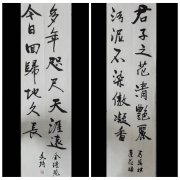 君子之花清艷麗
污泥不染傲凝香
多年咫尺天涯遠
今日回歸地久長